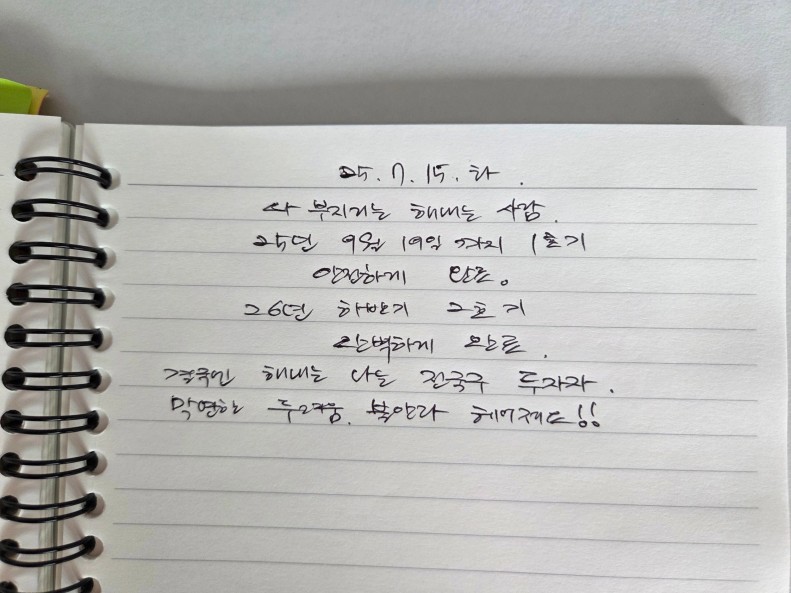 25. 7. 15. 화.
나 부지러는 해내는 사람.
25년 9월 19일 까지 1호기
안전하게 완료.
26년 하반기 2호기
완벽하게 완료.
결국엔 해내는 나는 전국구 투자자.
막연한 두려움. 불안과 헤어져라!!